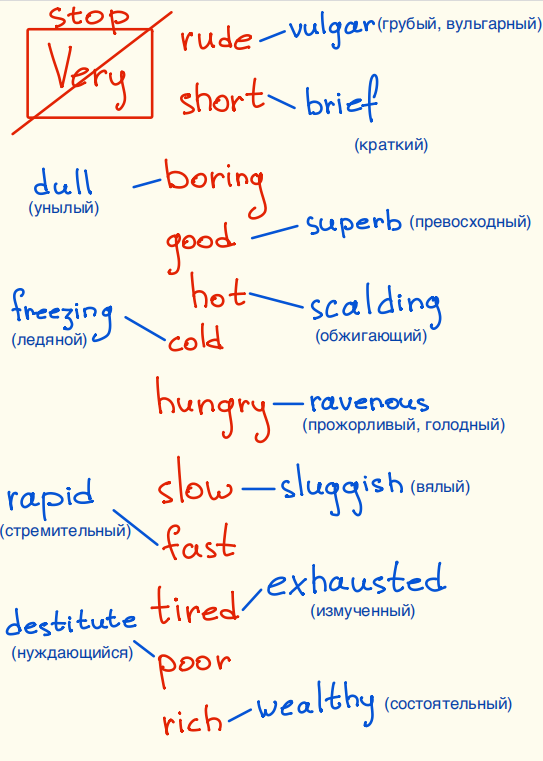 stop
Very
rude vulgar (грубый, вульгарный)
short brief
(краткий)
dull boring
(унылый)
good superb (превосходный)
hot scalding
(обжигающий)
freezing cold
(ледяной)
hungry ravenous
(прожорливый, голодный)
slow sluggish (вялый)
rapid fast
(стремительный)
tired exhausted
(измученный)
destitute poor
(нуждающийся)
rich wealthy (состоятельный)